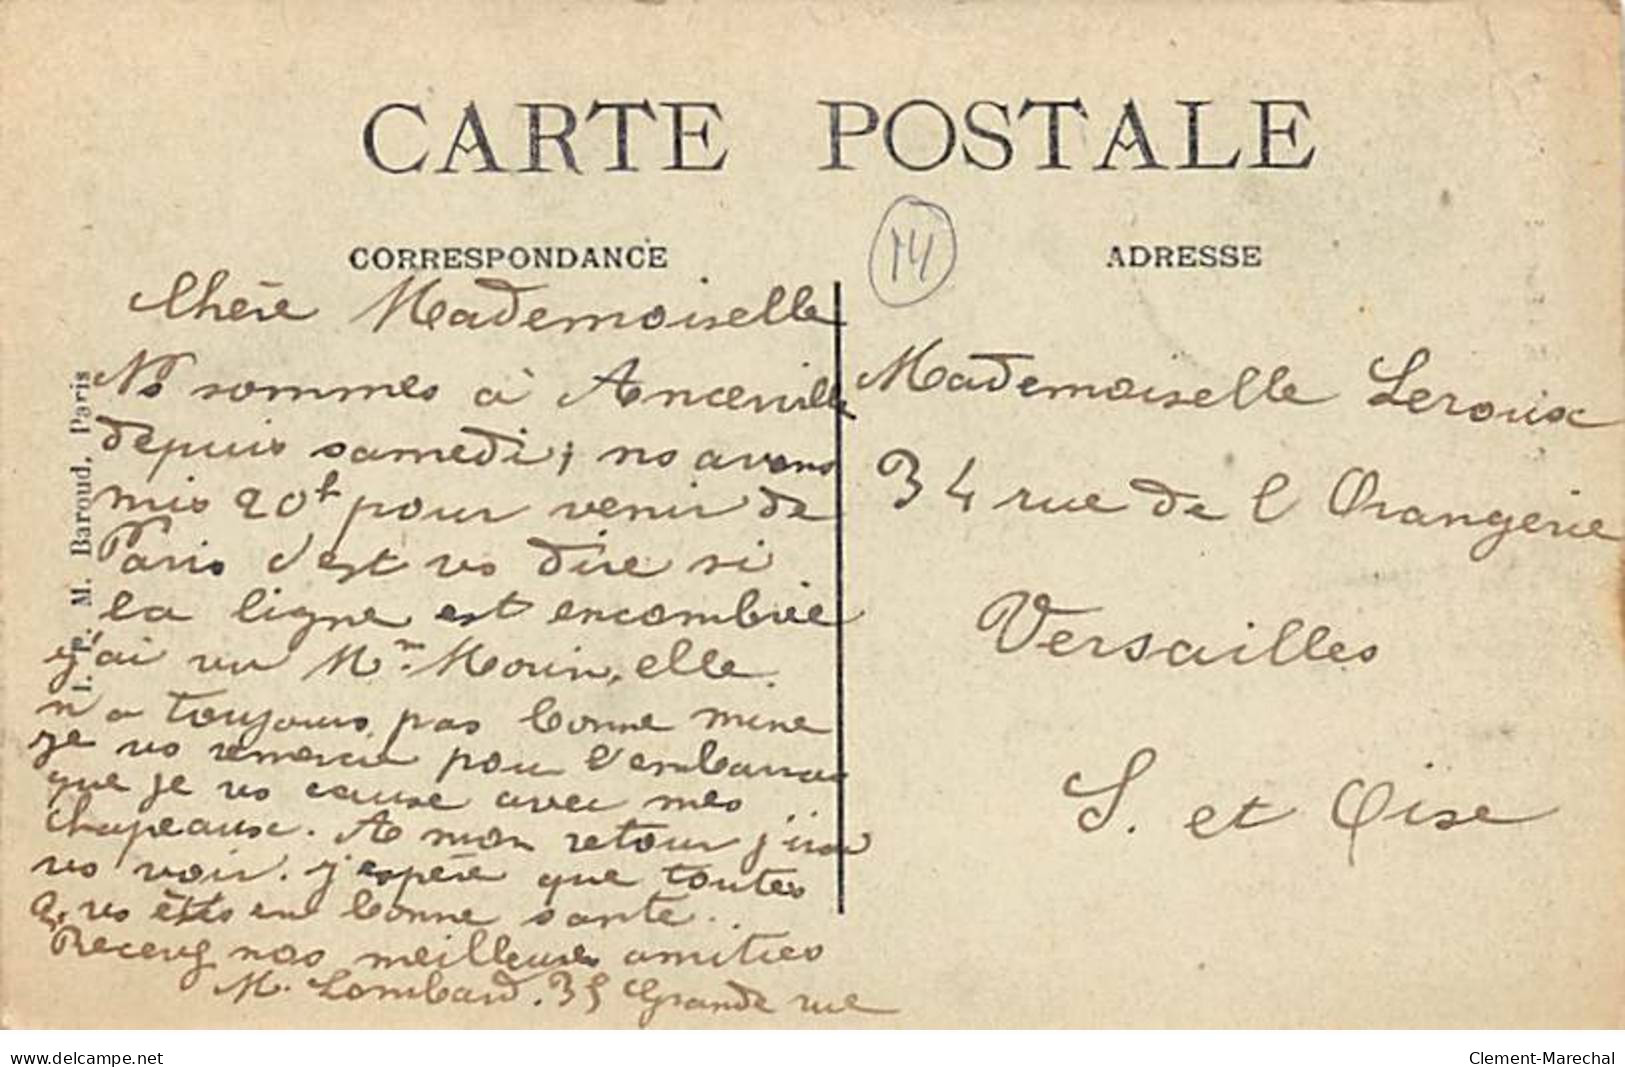 CARTE POSTALE
CORRESPONDANCE
14
ADRESSE
Chère Mademoiselle
Ns sommes à
depuis samedi; ns avons
mis 20h pour venir de
Paris c'est vs dire si
la ligne est encombrée
j'ai vu Mme Morin, elle
n'a toujours pas bonne mine
je vs remercie pour l'embarras
que je vs cause avec mes
chapeaux. A mon retour j'irai
vs voir. j'espère que toutes
2, vs êtes en bonne santé.
Recevez nos meilleures amitiés
M. Lombard. 35 Grande rue
Mademoiselle Leroux
34 rue de l Orangerie
Versailles
S. et Oise
I. P. M. Baroud, Paris
www.delcampe.net
Clement-Marechal